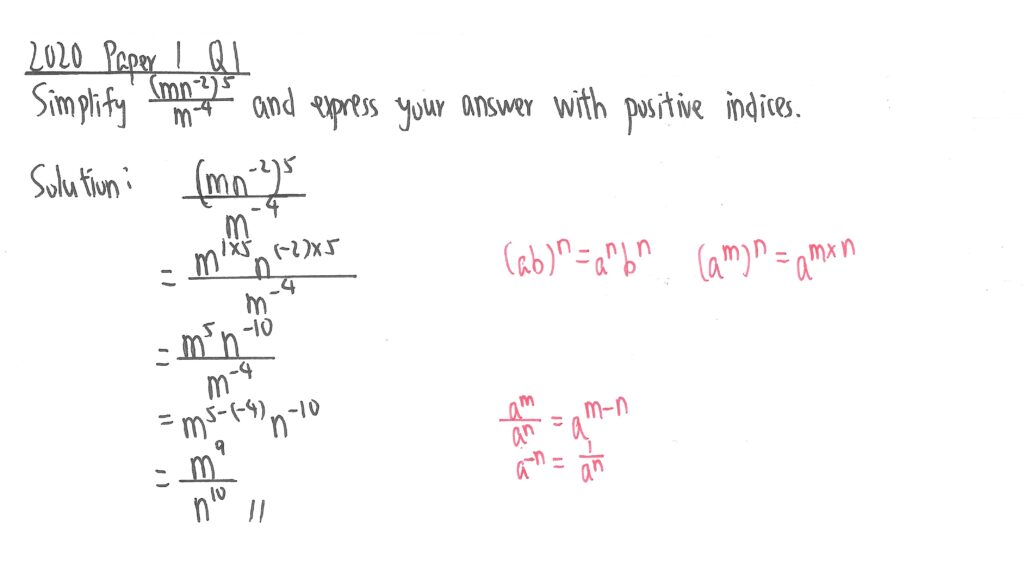 2020 Paper 1 Q1
Simplify (mn⁻²)⁵/m⁻⁴ and express your answer with positive indices.
Solution: (mn⁻²)⁵/m⁻⁴
= m¹ˣ⁵n⁽⁻²⁾ˣ⁵/m⁻⁴ (ab)ⁿ = aⁿbⁿ (aᵐ)ⁿ = aᵐˣⁿ
= m⁵n⁻¹⁰/m⁻⁴
= m⁵⁻⁽⁻⁴⁾n⁻¹⁰ aᵐ/aⁿ = aᵐ⁻ⁿ
= m⁹/n¹⁰ // a⁻ⁿ = 1/aⁿ